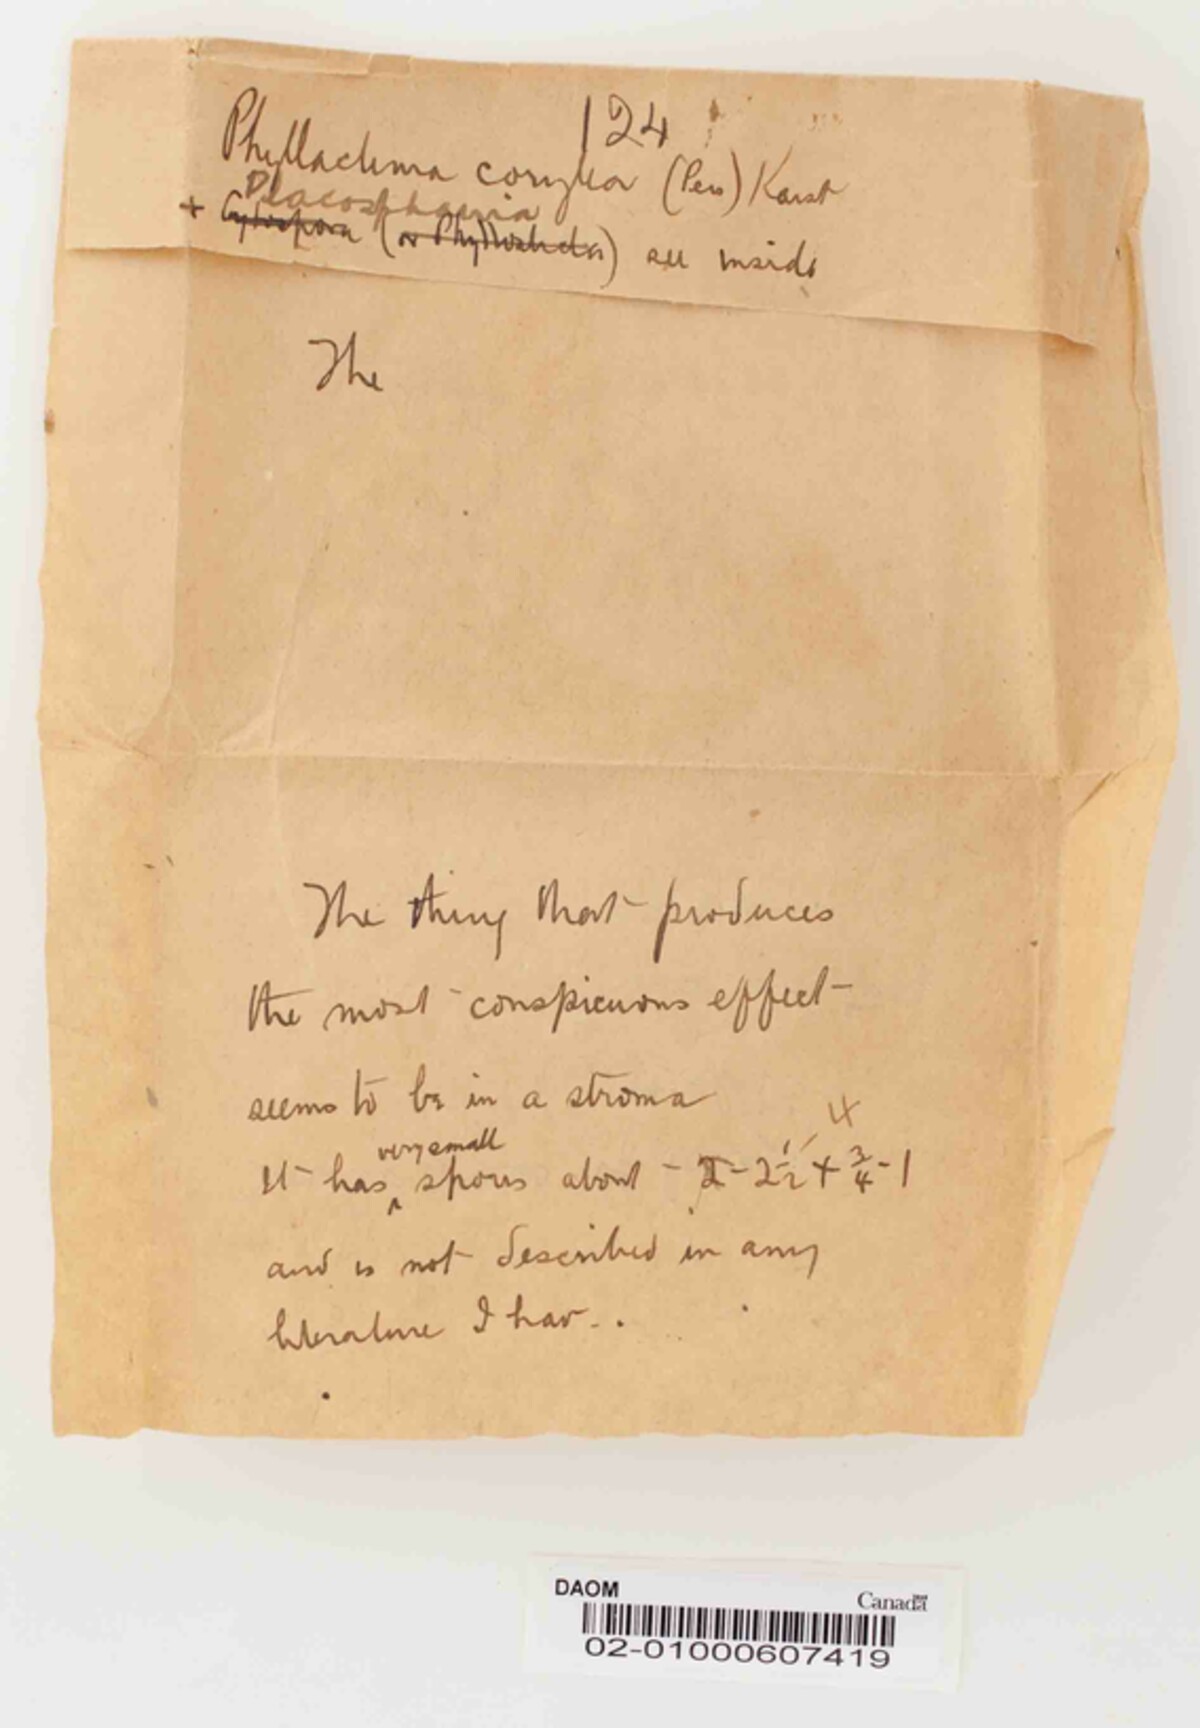 124
Phyllactinia corylea (Pers) Karst
Placosphaeria
+ Cytospora (or Phyllosticta) see inside
The
The thing that produces
the most conspicuous effect
seems to be in a stroma
4
very small
It has ‸ spores about - 2-2½ + ¾-1
and is not described in any
literature I have.
DAOM
Canada
02-01000607419